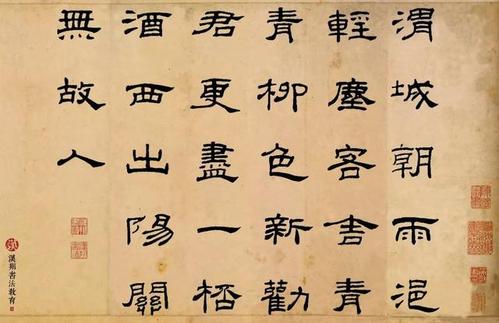 渭城朝雨浥
輕塵客舍青
青柳色新勸
君更盡一桮
酒西出陽關
無故人
漢翔書法教育